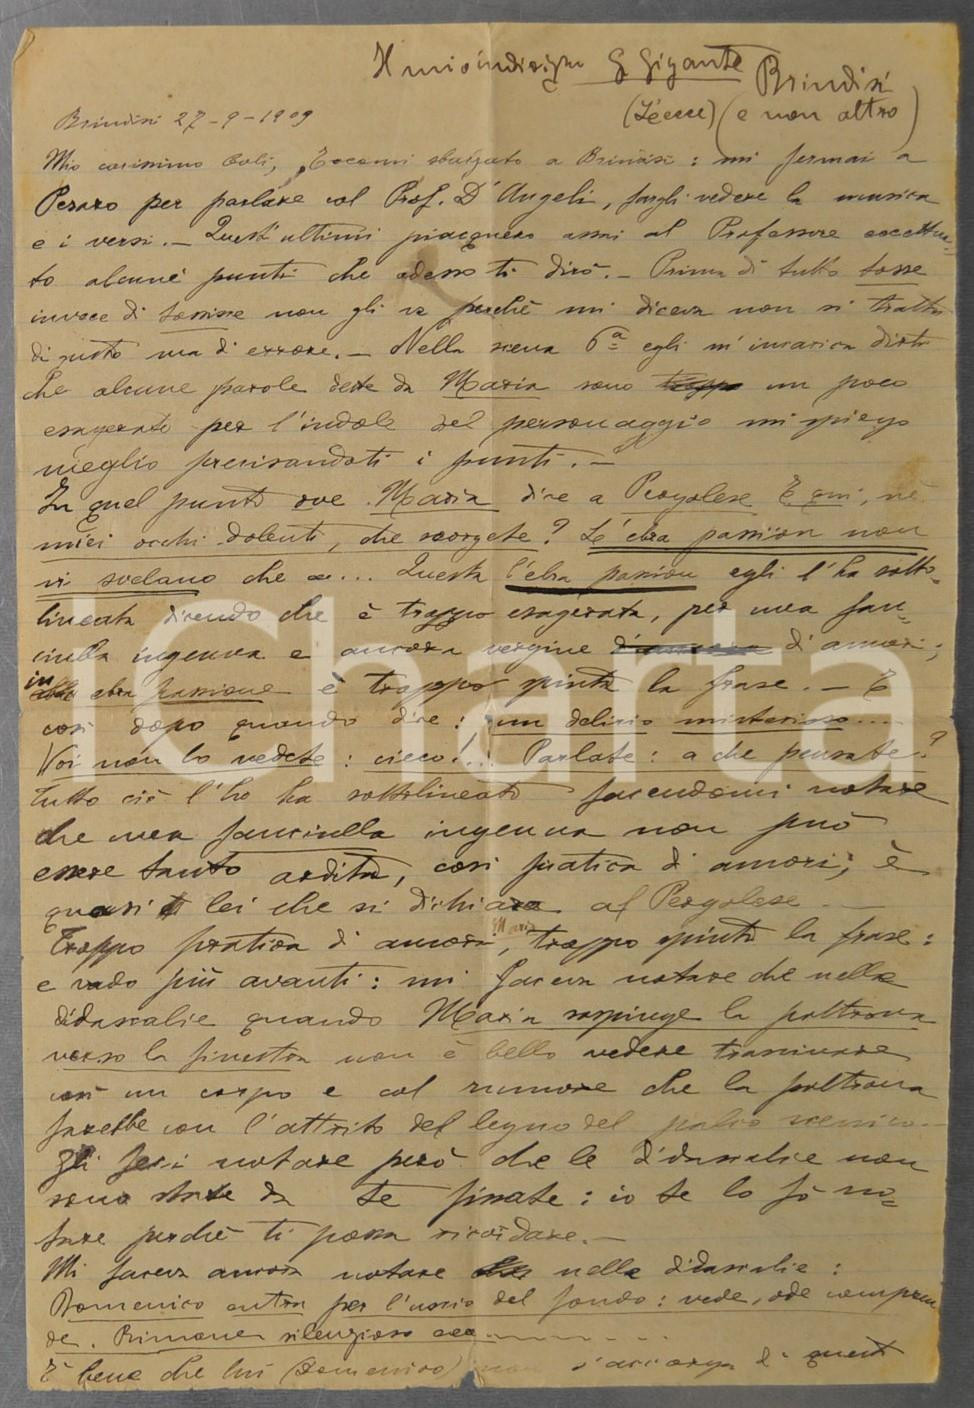 Il mio indirizzo G Gigante Brindisi
(Lecce) (e non altro)
Brindisi 27-9-1909
Mio carissimo Coli, Eccomi sbalzato a Brindisi: mi fermai a
Pesaro per parlare col Prof. D'Angeli, fargli vedere la musica
e i versi. — Quest'ultimi piacquero assai al Professore eccettua-
to alcuni punti che adesso ti dirò. — Prima di tutto tosse
invece di tossisse non gli va perchè mi diceva non si tratta
di gusto ma di errore. — Nella scena 6ª egli m'incarica dirti
che alcune parole dette da Maria sono troppo un poco
esagerate per l'indole del personaggio mi spiego
meglio precisandoti i punti. —
In quel punto ove Maria dice a Pergolese E qui, nè
miei occhi dolenti, che scorgete? L'ebra passion non
vi svelano che ... Questa l'ebra passion egli l'ha sotto-
lineata dicendo che è troppo esagerata, per una fan-
ciulla ingenua e ancora vergine d'amori;
in ebra passione è troppo spinta la frase. — E
così dopo quando dice: un delirio misterioso...
Voi non lo vedete: cieco!.. Parlate: a che pensate?
tutto ciò l'ho ha sottolineato facendomi notare
che una fanciulla ingenua non può
essere tanto ardita, così pratica di amori; è
quasi lei che si dichiara al Pergolese —
Troppo pratica di amori, troppo spinta la frase:
e vado più avanti: mi faceva notare che nelle
didascalie quando Maria sospinge la poltrona
verso la finestra non è bello vedere trascinare
così un corpo e col rumore che la poltrona
farebbe con l'attrito del legno del palco scenico. —
gli feci notare però che le didascalie non
sono state da te fissate: io te lo fò no-
tare perchè ti possa ricordare. —
Mi faceva ancora notare nelle didascalie:
Domenico entra per l'uscio del fondo: vede, ode compren
de. Rimane silenzioso ecc.......
È bene che lui (Domenico) non s'accorga di questo
iCharta